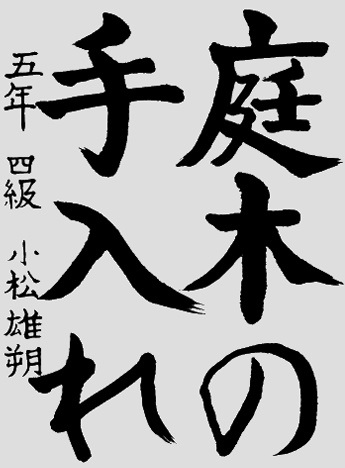 庭木の
手入れ
五年 四級 小松雄朔